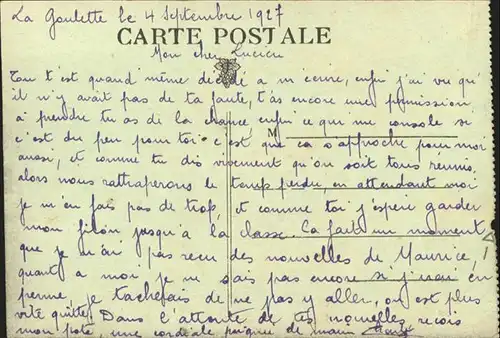 La Goulette le 4 Septembre 1927
CARTE POSTALE
Mon cher Lucien
Tou t'est quand même décidé a m ecrire, enfin j'ai vu qu'
il n'y avait pas de ta faute, t'as encore une permission
a prendre tu as di la chance enfin ce qui me console si
M
c'est du peu pour toi c'est que ca s'approche pour moi
aussi, et comme tu dis vivement qu'on soit tous réunis
alors nous rattraperons le temps perdu, en attendant moi
je m'en fais pas de trop, et comme toi j'espère garder
mon filon jusqu'a la classe. Ca fait un moment
que je n'ai pas recu des nouvelles de Maurice,
quant a moi je ne sais pas encore si j'irai en
perme, je tacherais de ne pas y aller, on est plus
vite quitte. Dans l'attente de tes nouvelles recois
mon pote, une cordiale poignée de main